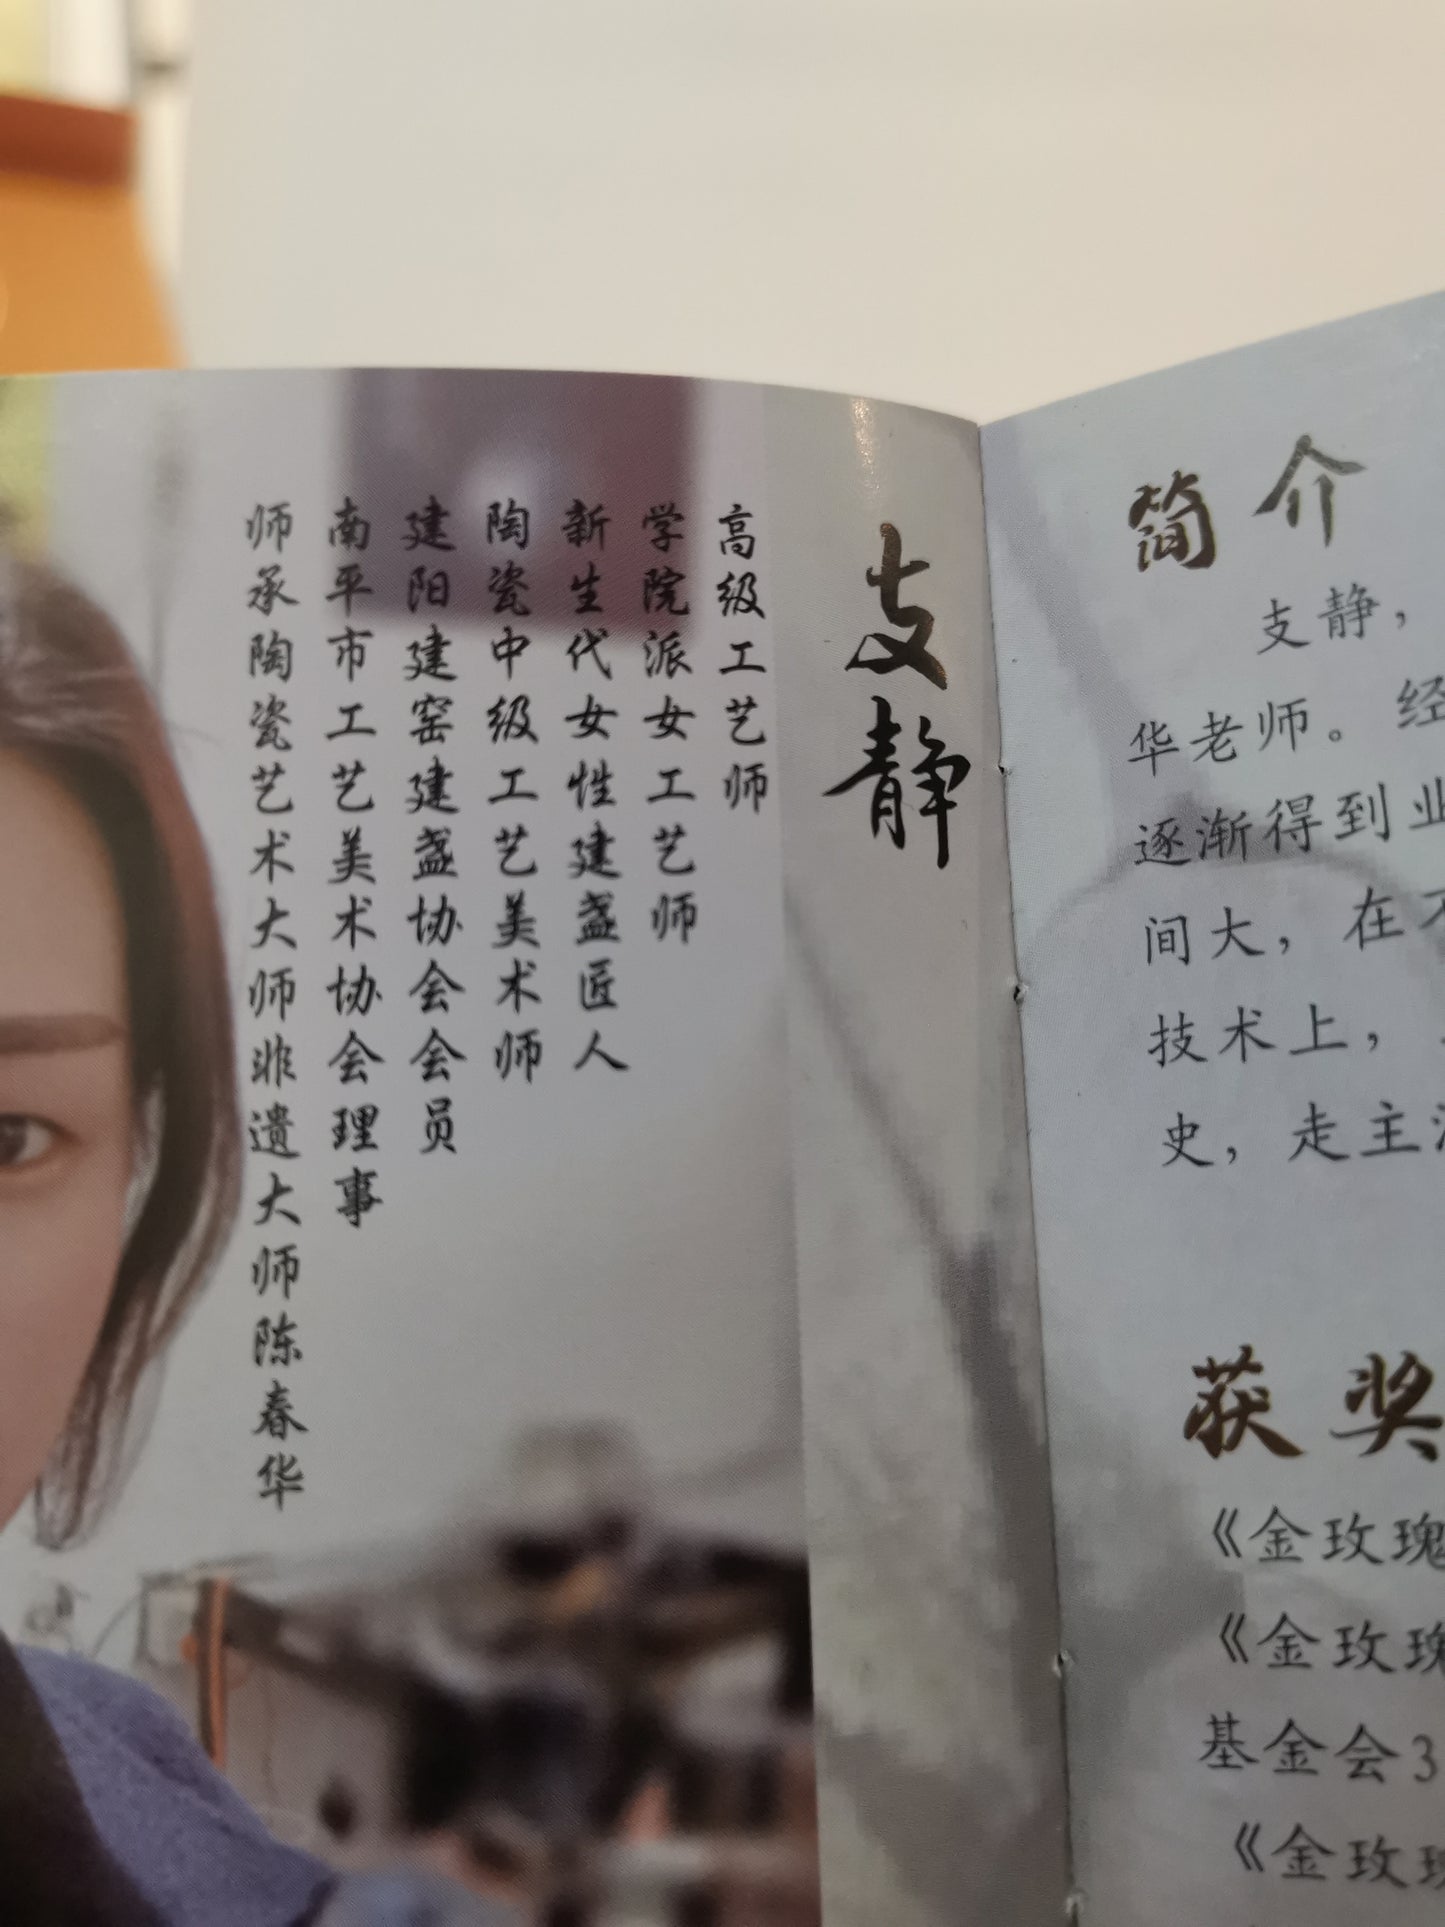 支静
高级工艺师
学院派女工艺师
新生代女性建盏匠人
陶瓷中级工艺美术师
建阳建窑建盏协会会员
南平市工艺美术协会理事
师承陶瓷艺术大师非遗大师陈春华
简介
支静，
华老师。经
逐渐得到业
间大，在不
技术上，
史，走主
获奖
《金玫瑰
《金玫瑰
基金会3
《金玫瑰